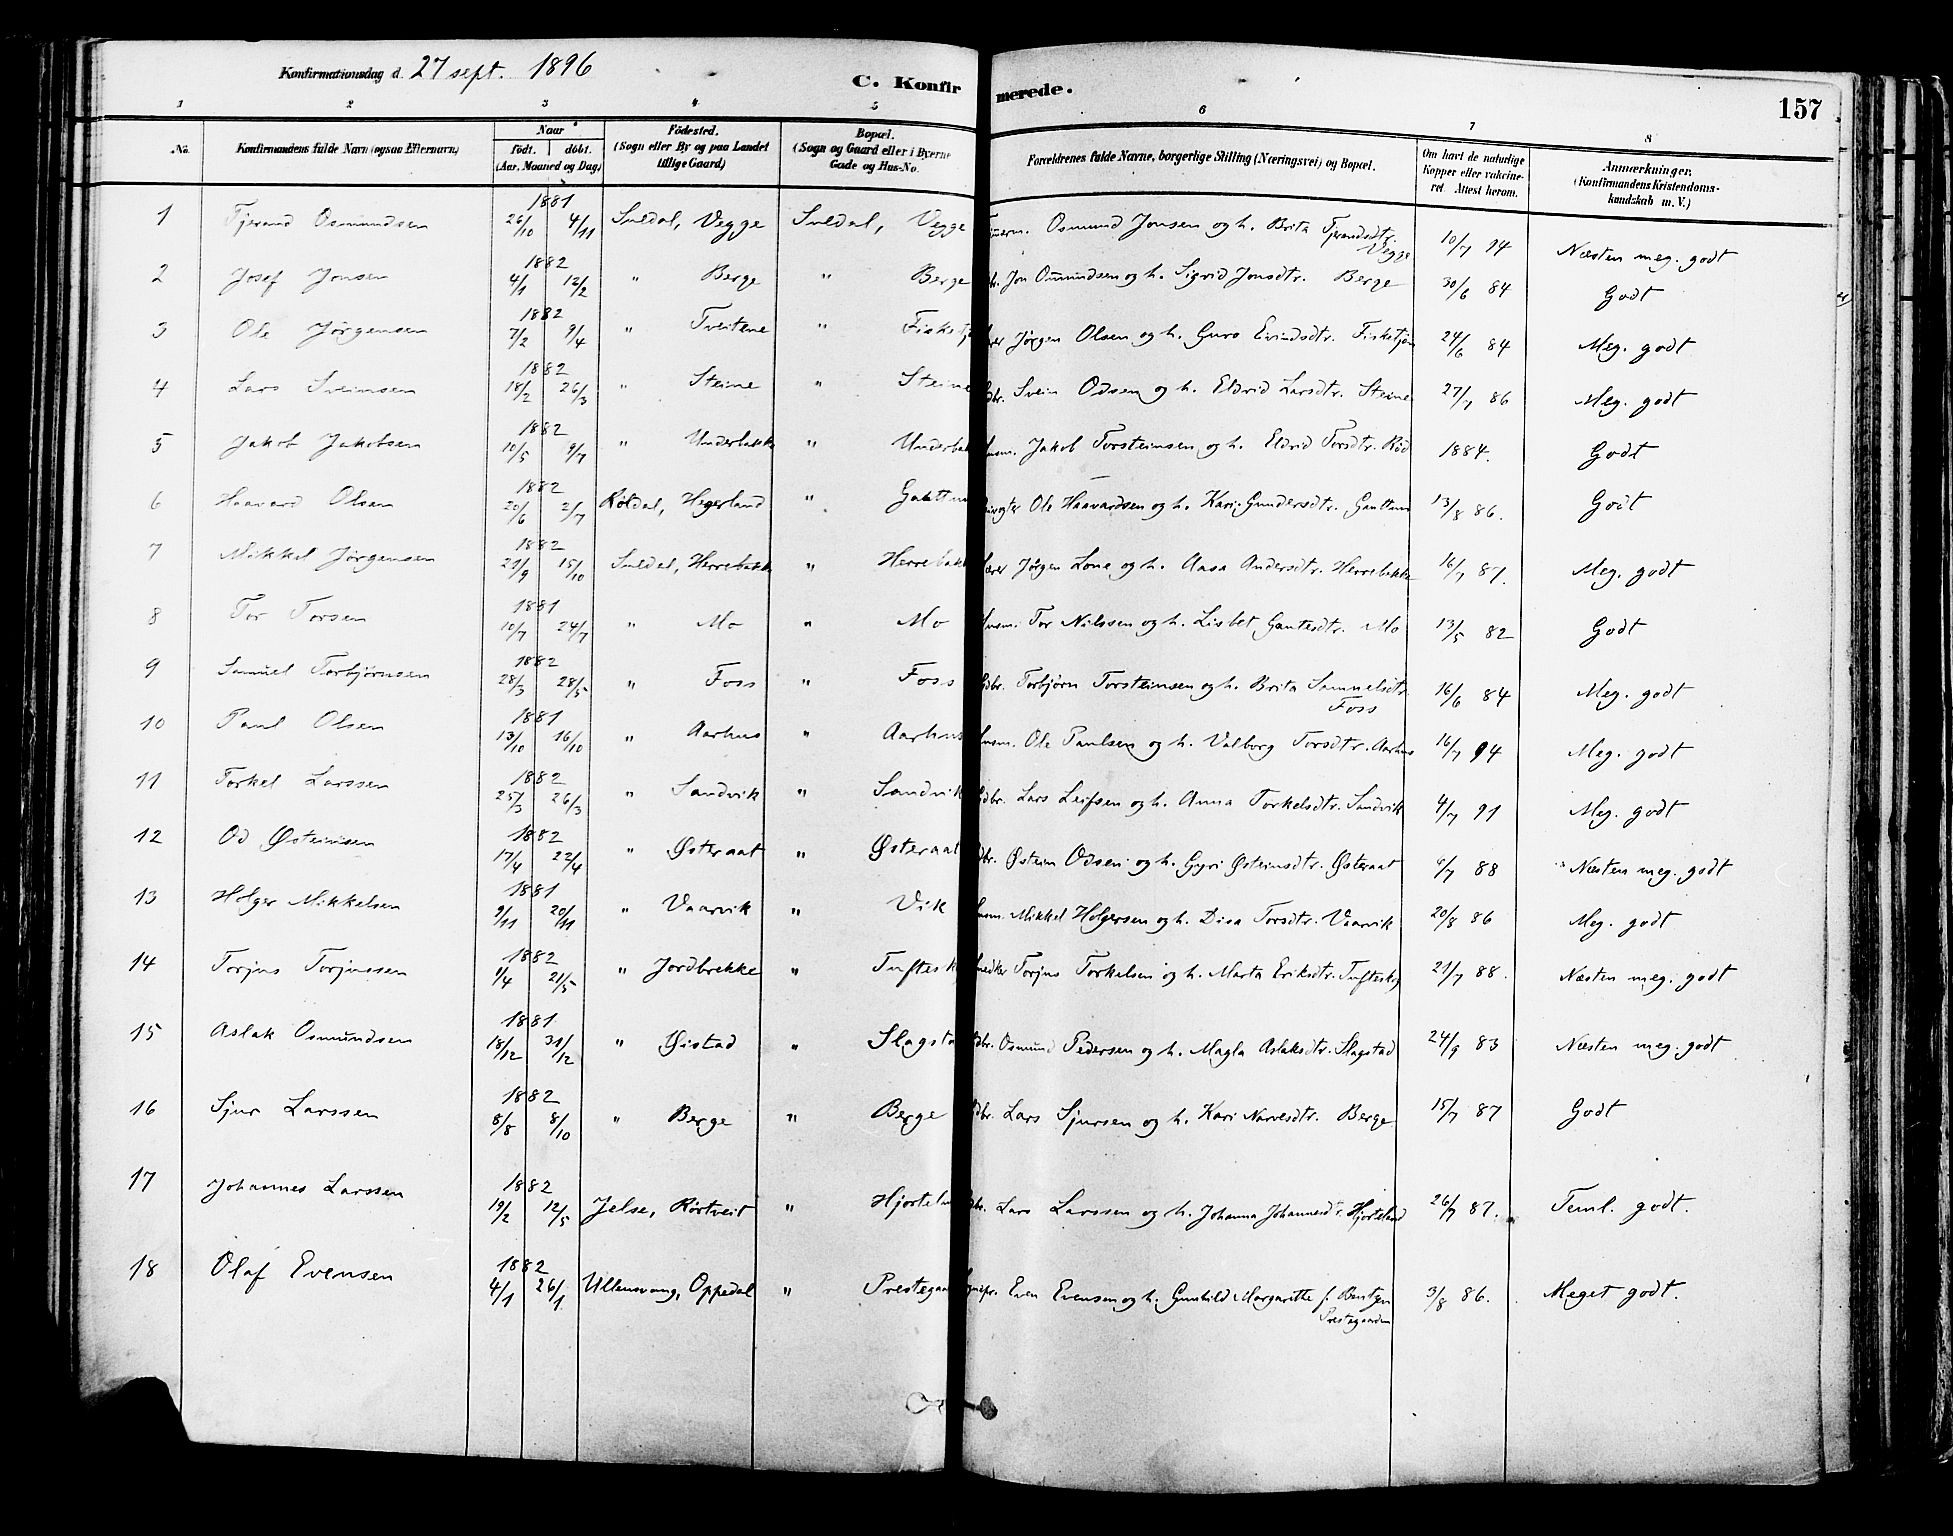 Konfirmationsdag d. 27 sept. 1896
C. Konfirmerede.
157
1 2 3 4 5 6 7 8
No. Konfirmandens fulde Navn (ogsaa Efternavn) Naar Födt. döbt. (Aar, Maaned og Dag) Födested. (Sogn eller By og paa Landet tillige Gaard) Bopæl. (Sogn og Gaard eller i Byerne Gade og Hus-No. Forældrenes fulde Navne, borgerlige Stilling (Næringsvei) og Bopæl. Om havt de naturlige Kopper eller vakcineret. Attest herom. Anmærkninger. (Konfirmandens Kristendomskundskab m. V.)
1 Tjerand Osmundsen 1881 26/10 4/11 Suldal, Vegge Suldal, Vegge Osmund Jonsen og h. Brita Tjerandsdtr. Vegge 10/7 94 Næsten meg. godt
2 Josef Jonsen 1882 4/1 12/2 " Berge " Berge Jon Osmundsen og h. Sigrid Jonsdtr. Berge 30/6 84 Godt
3 Ole Jørgensen 1882 7/2 9/4 " Tveitene " Fisketj Jørgen Olsen og h. Guro Eivindsdtr. Fisketjøn 24/6 84 Meg. godt
4 Lars Sveinsen 1882 18/2 26/3 " Steine " Steine Svein Odsen og h. Eldrid Larsdtr. Steine 27/7 86 Meg. godt
5 Jakob Jakobsen 1882 10/5 9/7 " Underbakke " Underbak Husm. Jakob Torsteinsen og h. Eldrid Torsdtr. Rød 1884. Godt
6 Haavard Olsen 1882 20/6 2/7 Røldal, Hegerland " Gautun Ole Haavardsen og h. Kari Gundersdtr. Gautun 13/8 86. Godt
7 Mikkel Jørgensen 1882 21/9 15/10 Suldal, Herrebakke " Herrebakk Jørgen Lone og h. Aasa Andersdtr. Herrebakke 16/7 87. Meg. godt
8 Tor Torsen 1881 10/7 24/7 " Mo " Mo Husm. Tor Nilssen og h. Lisbet Gautesdtr. Mo 13/5 82 Godt
9 Samuel Torbjørnsen 1882 28/3 28/5 " Foss " Foss Gdbr. Torbjørn Torsteinsen og h. Brita Samuelsdtr. Foss 16/6 84 Meg. godt
10 Paul Olsen 1881 13/10 16/10 " Aarhus " Aarhus Husm. Ole Paulsen og h. Valborg Torsdtr. Aarhus 16/7 94 Meg. godt
11 Torkel Larssen 1882 25/3 26/3 " Sandvik " Sandvik Gdbr. Lars Leifsen og h. Anna Torkelsdtr. Sandvik 4/7 91 Meg. godt
12 Od Østeinsen 1882 17/4 22/4 " Østeraat " Østeraat Gdbr. Østein Odsen og h. Gyri Østeinsdtr. Østeraat 9/7 88 Næsten meg. godt
13 Holger Mikkelsen 1881 9/11 20/11 " Vaarvik " Vik Husm. Mikkel Holgersen og h. Disa Torsdtr. Vaarvik 20/8 86 Meg. godt
14 Torjus Torjussen 1882 1/4 21/5 " Jordbrekke " Tuftesk Torjus Torkelsen og h. Marta Eriksdtr. Tufteskog 21/7 88. Næsten meg. godt
15 Aslak Osmundsen 1881 18/12 31/12 " Øistad " Slagsta Gdbr. Osmund Pedersen og h. Magla Aslaksdtr. Slagstad 24/9 83 Næsten meg. godt
16 Sjur Larssen 1882 8/8 8/10 " Berge " Berge Gdbr. Lars Sjursen og h. Kari Narvesdtr. Berge 15/7 87 Godt
17 Johannes Larssen 1882 19/2 12/5 Jelse, Rørtveit " Hjortelan Gdbr. Lars Larssen og h. Johanna Johannesdtr. Hjorteland 26/7 87. Teml. godt.
18 Olaf Evensen 1882 4/1 26/1. Ullensvang, Oppedal " Prestegaa Sognepr. Even Evensen og h. Gunhild Margarethe f. Prestegaarden 3/8 86. Meget godt.